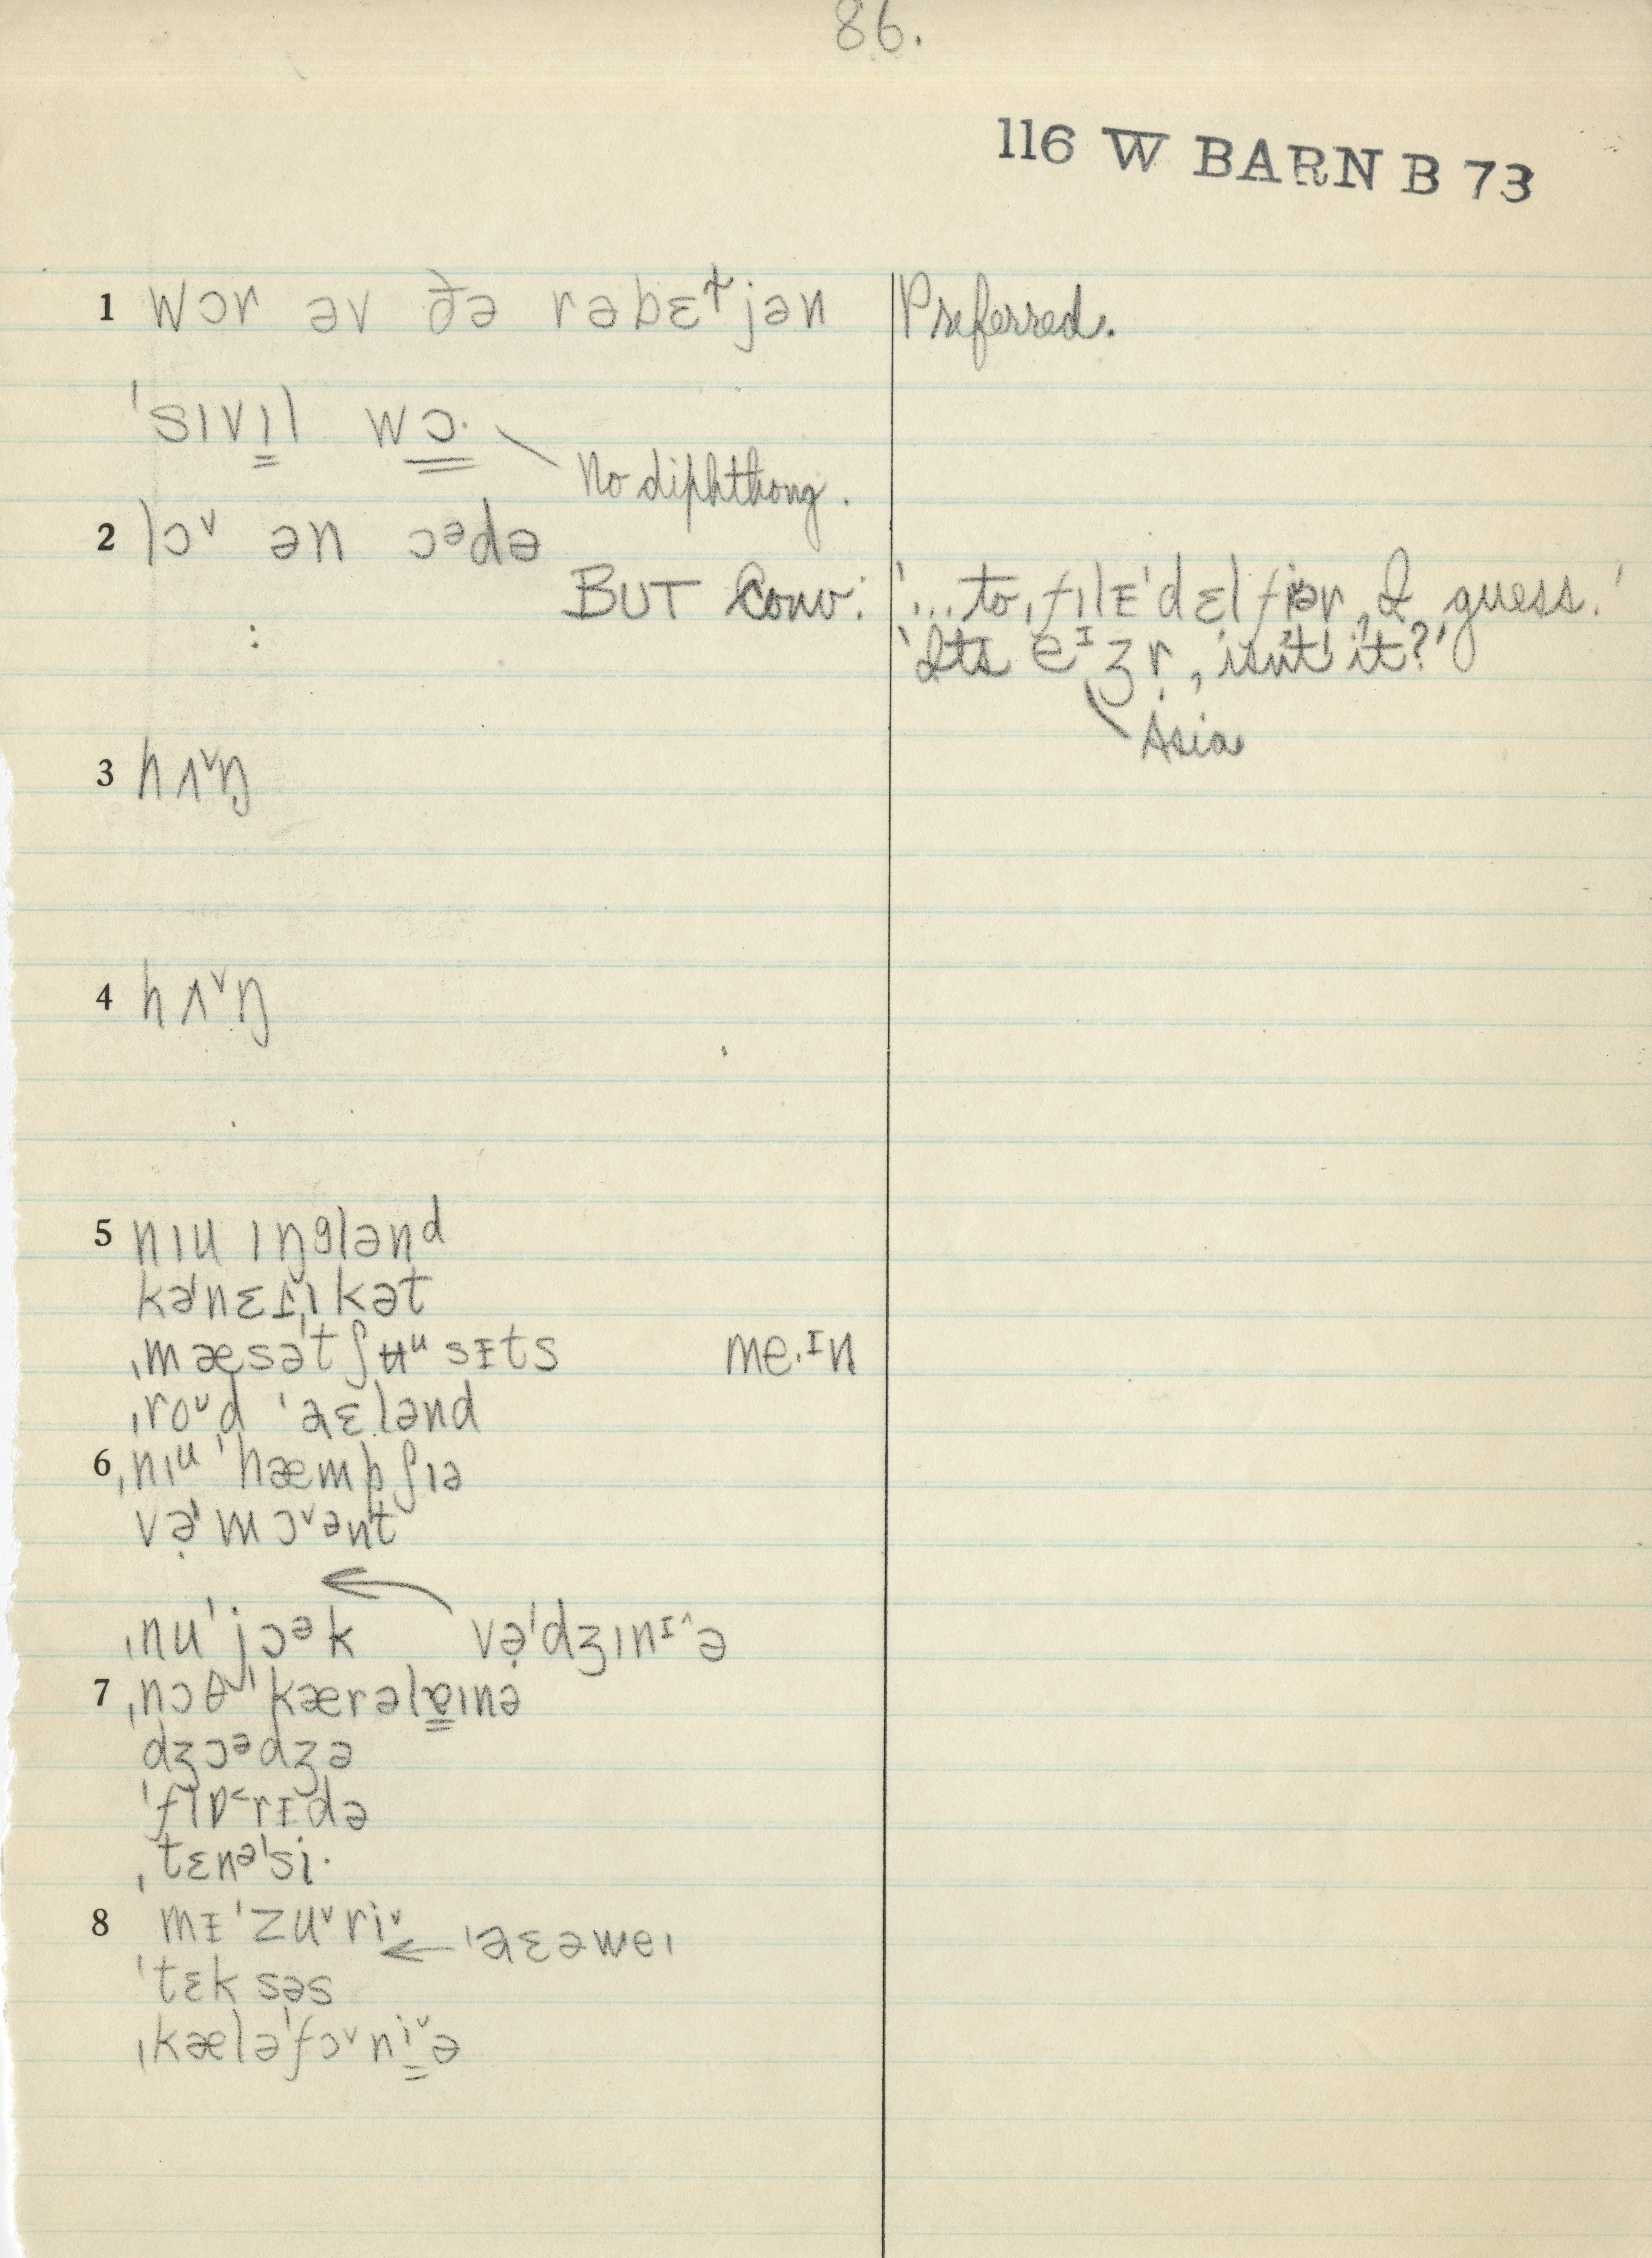 86.
116 W BARN B 73
1 wɔr əv ðə rəbɛɬjən Preferred.
ˈsɪvɪl wɔ·
No diphthong.
2 lɔ˅ ən ɔᵊdə
BUT Conv: '...to ˌfɪlɪˈdɛlfiər, I guess.'
: 'Its eᶦʒṛ, isn't it?'
Asia
3 hʌ˅ŋ
4 hʌ˅ŋ
5 nɪu ɪŋgləndᵈ
kəˈnɛt̬ˌɪkət
ˌmæsəˈtʃʉᵘsɪts me·ᶦn
ˌroᶷd ˈaɛlənd
6 ˌnɪᵘ ˈhæmpʃɪə
və̣ˈmɔ˅ənt
ˌnuˈjɔᵊk və̣ˈdʒɪnɪ˄ə
7 ˌnɔθ ˈkærəlɐɪnə
dʒɔᵊdʒə
ˈflɒ˂rɪdə
ˌtɛnəˈsi·
8 mɪˈzu˅ri˅ ˈaɛəweɪ
ˈtɛksəs
ˌkæləˈfɔ˅ni˅ə